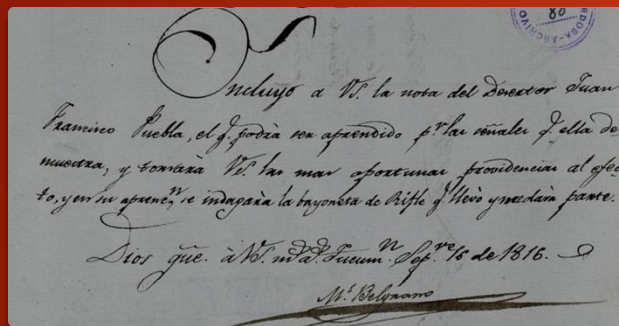 80
CORDOBA-ARCHIVO
Incluyo a VS. la nota del Desertor Juan
Francisco Puebla, el q. podrá ser aprendido pr. las señales q. ella de
muestra, y tomará VS. las mas oportunas providencias al efec
to, y en su aprenn. se indagará la bayoneta de Rifle q. llevó y me dará parte.
Dios gûe. à VS. ms. as. Tucumn. Sepre. 16 de 1816.
Ml. Belgrano